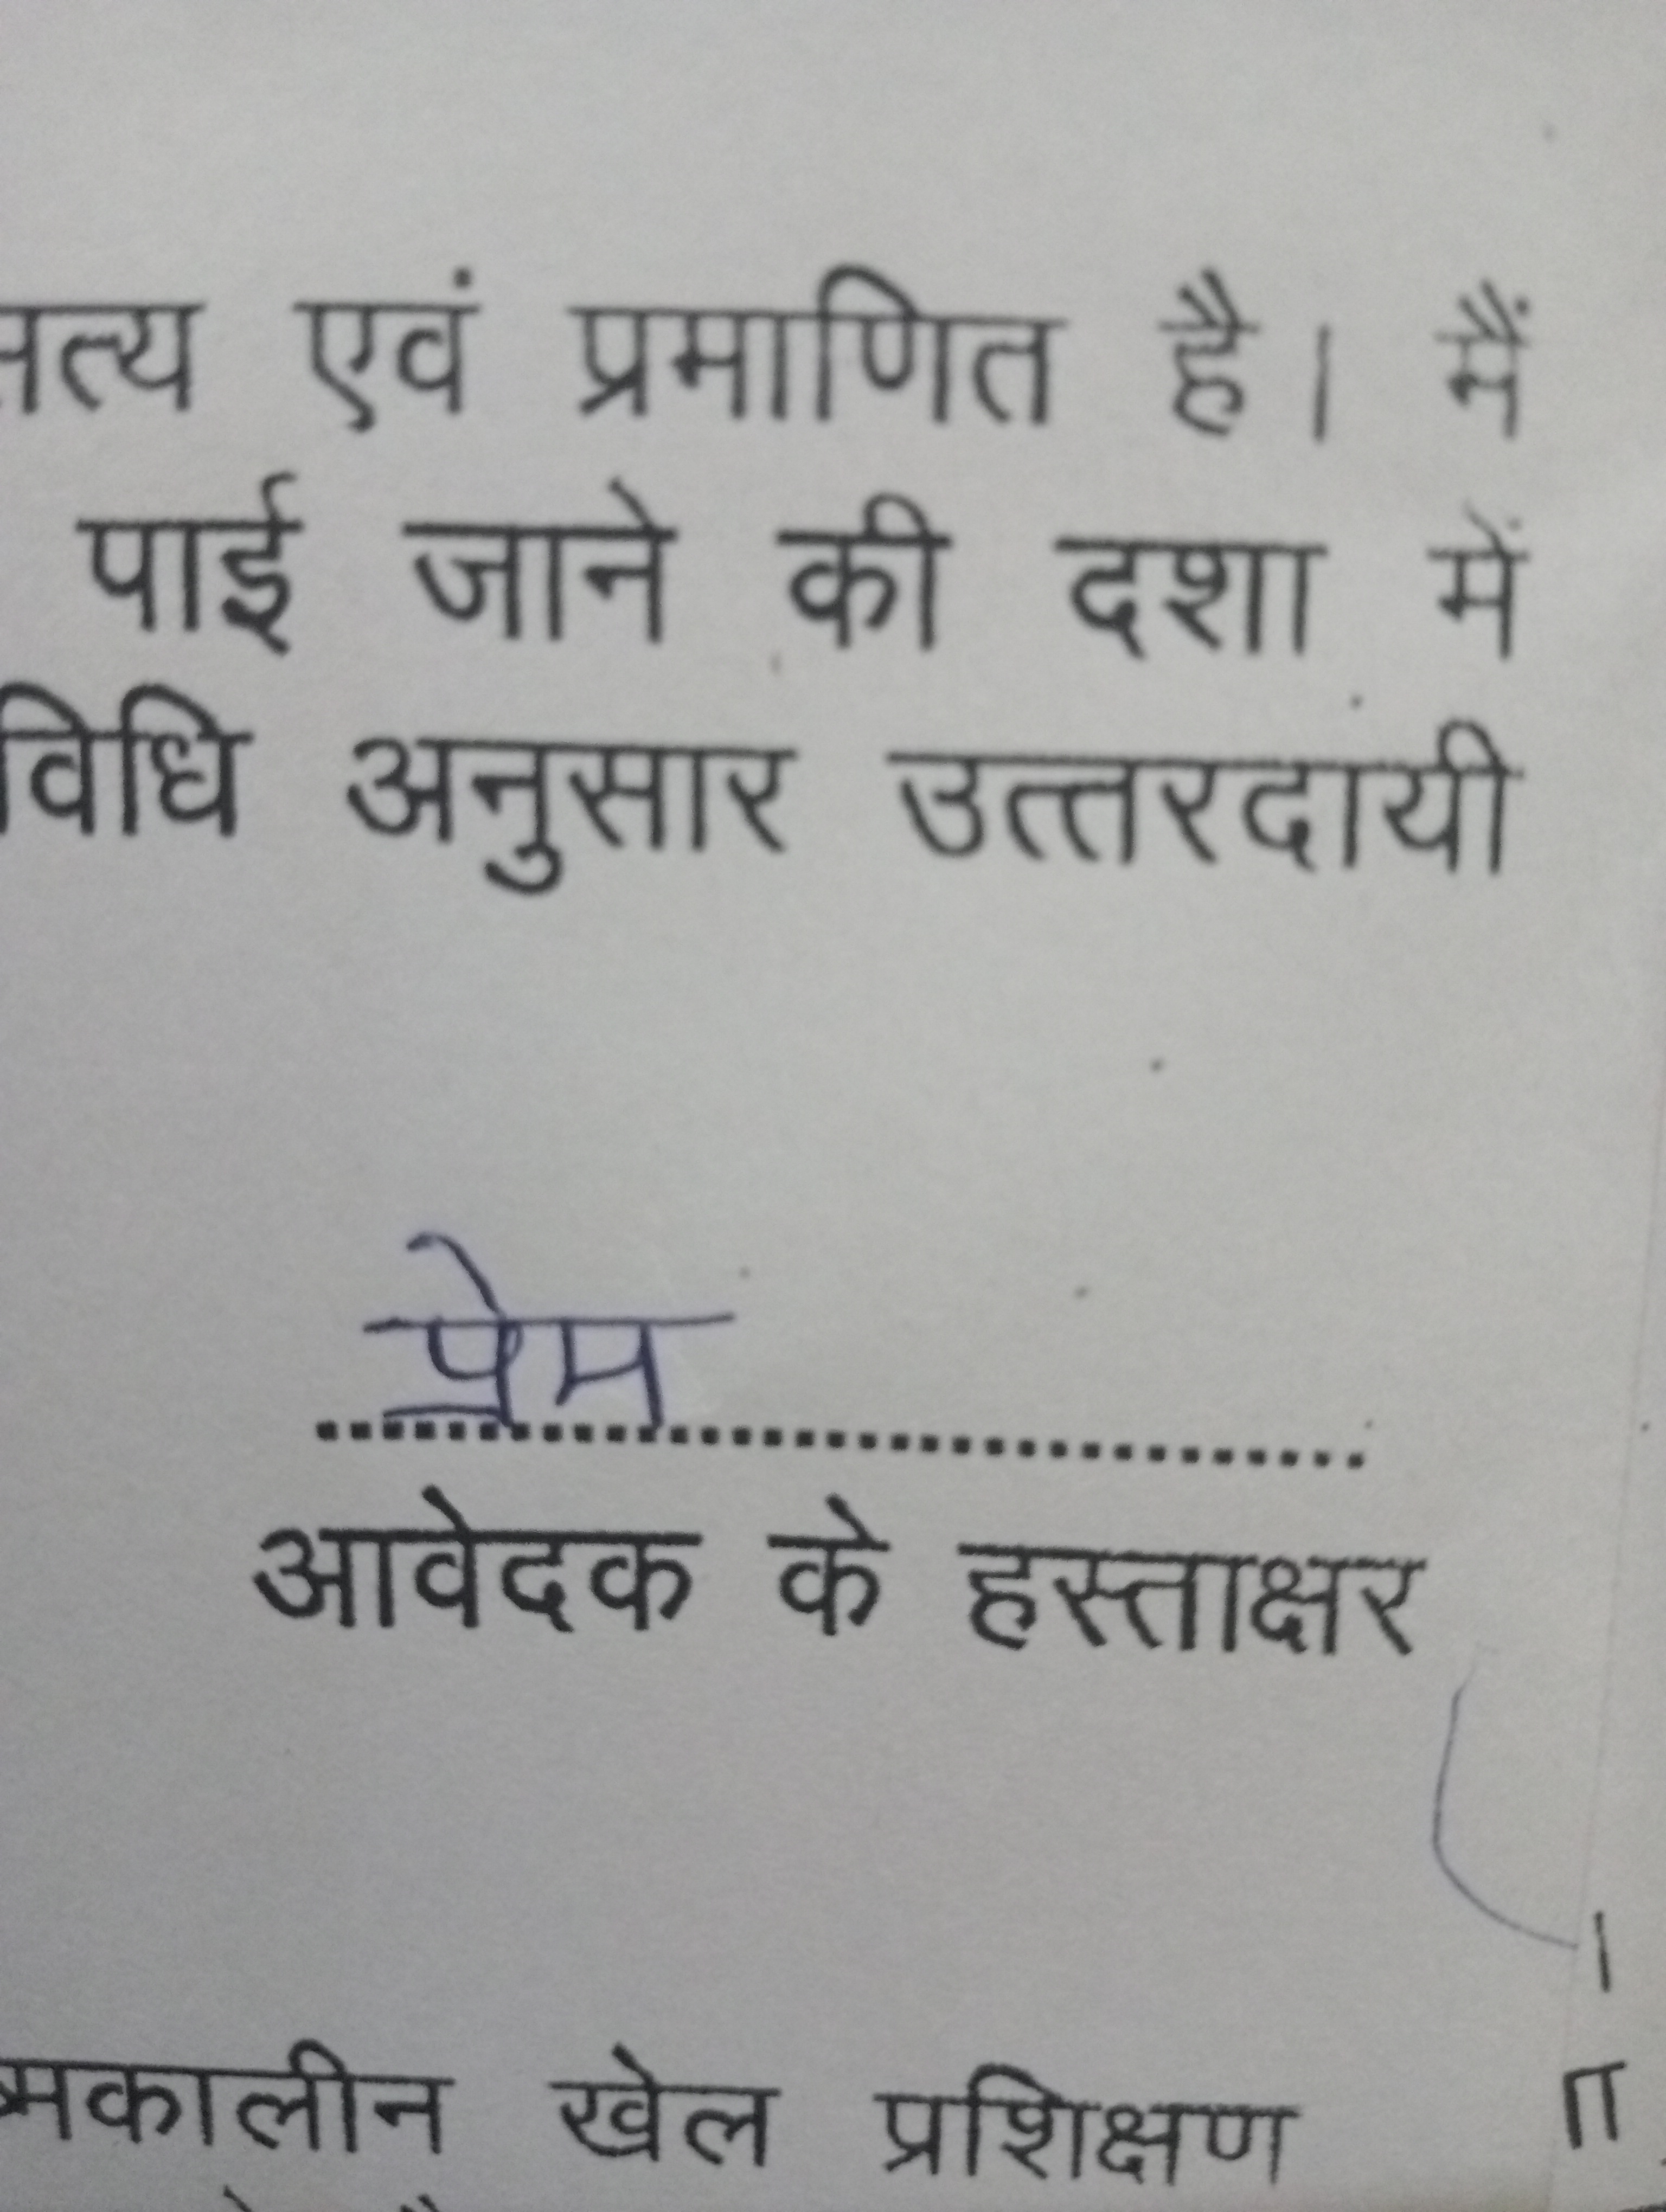 सत्य एवं प्रमाणित है। मैं
पाई जाने की दशा में
विधि अनुसार उत्तरदायी
प्रेम
आवेदक के हस्ताक्षर
खेल प्रशिक्षण